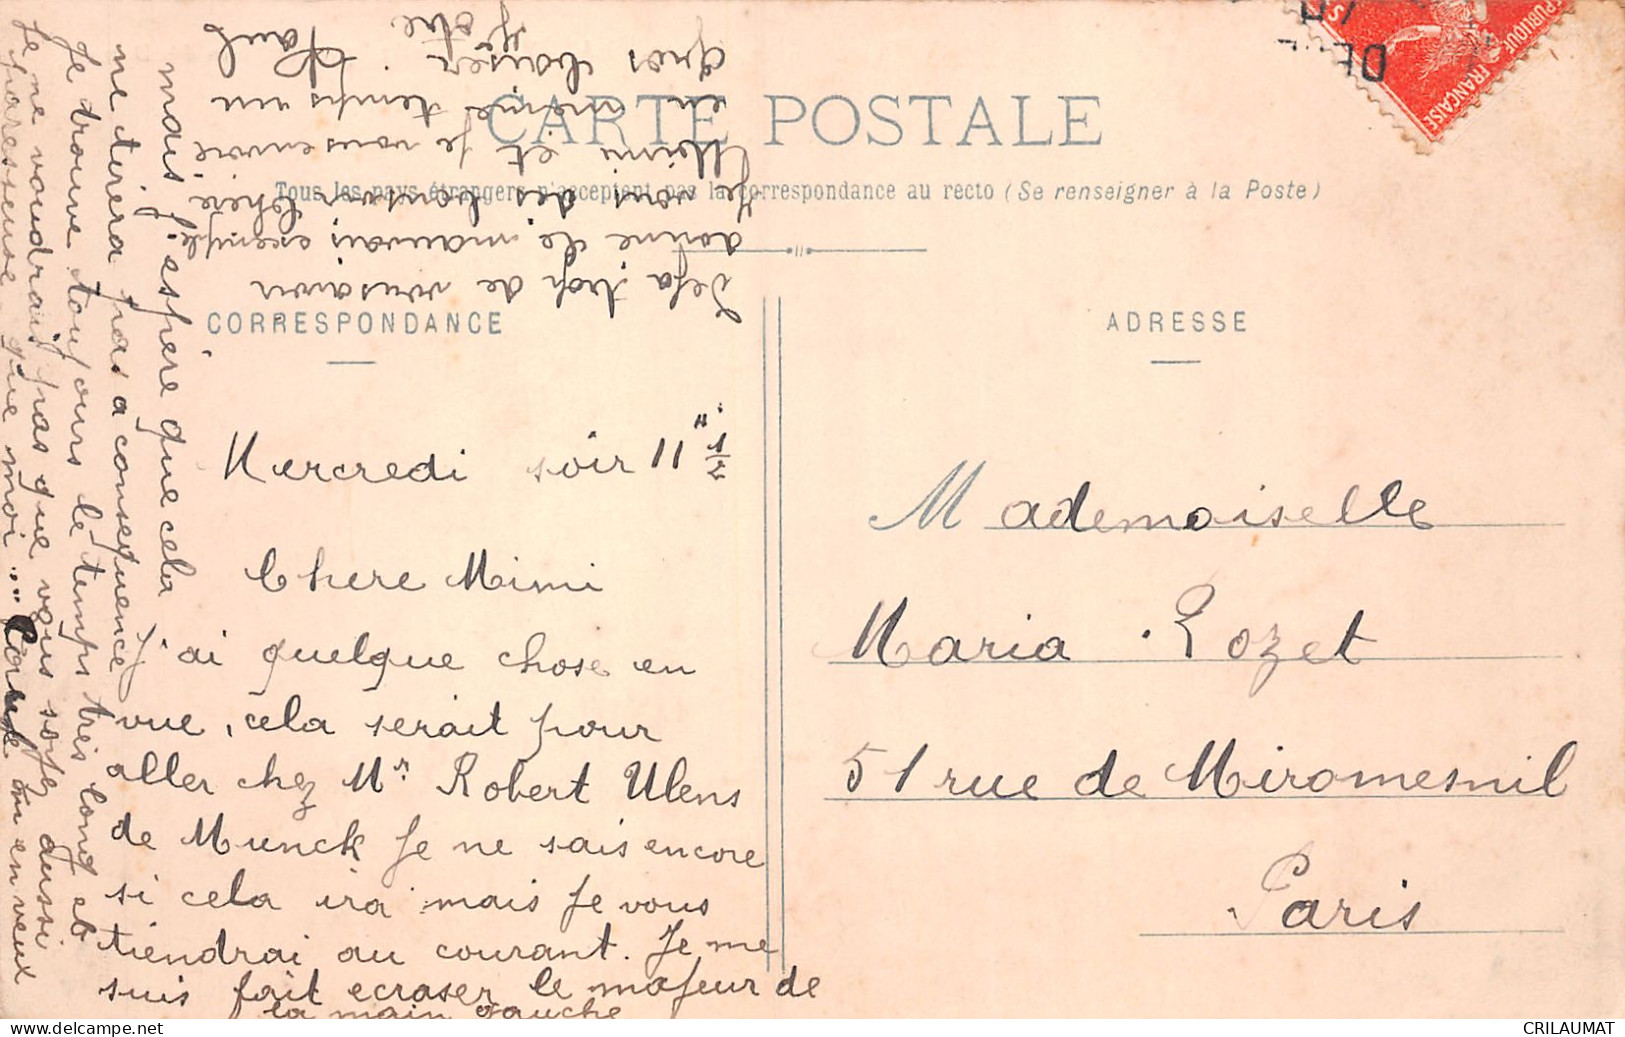 CARTE POSTALE
Tous les pays étrangers n'acceptent pas la correspondance au recto (Se renseigner à la Poste)
CORRESPONDANCE
ADRESSE
RÉPUBLIQUE FRANÇAISE
Mercredi soir 11" 1/2
Chere Mimi
J'ai quelque chose en
vue, cela serait pour
aller chez Mr Robert Ulens
de Munck je ne sais encore
si cela ira mais je vous
tiendrai au courant. Je me
suis fait ecraser le majeur de
la main gauche
mais j'espère que cela
ne tirera pas a consequence
Je trouve toujours le temps très long et
Je ne voudrais pas que vous soyez aussi
paresseuse que moi ... on en veut
deja trop de vous avoir
donné de mauvais exemple
Je vous dis bonsoir chère
Mimi et je vous envoie
en même temps un
gros baiser. Paul
Mademoiselle
Maria Rozet
51 rue de Miromesnil
Paris
CRILAUMAT